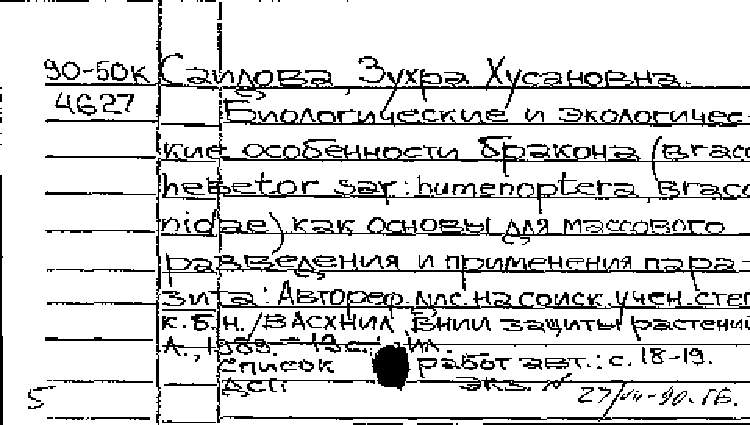 90-50к Саидова, Зухра Хусановна.
4627 Биологические и экологичес-
кие особенности бракона (Brac
hebetor say: humenoptera, Brac
nidae) как основы для массового
разведения и применения пара-
зита: Автореф. дис. на соиск. учен. степ
к.б.н. /ВАСХНИЛ, ВНИИ защиты растений
Л., 1988.
Список работ авт.: с. 18-19.
ДСП экз. №
5